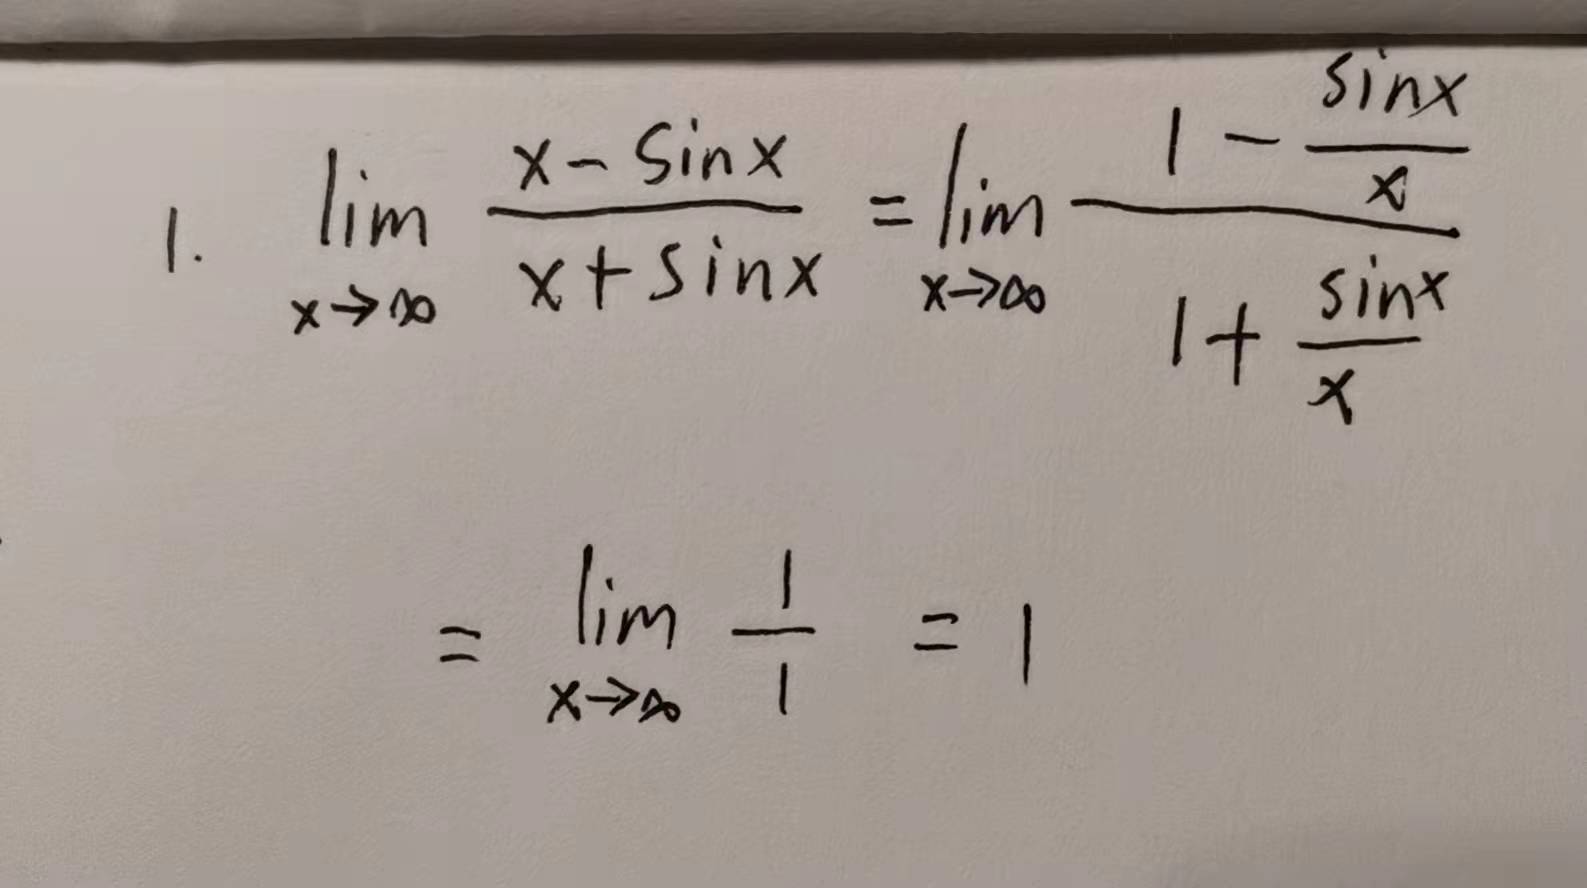 1. lim x→∞ (x - sinx)/(x + sinx) = lim x→∞ (1 - sinx/x)/(1 + sinx/x)
= lim x→∞ 1/1 = 1